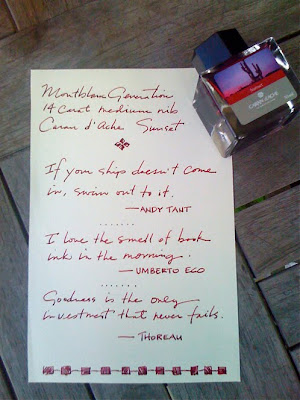 Montblanc Generation
14 carat medium nib
Caran d'Ache Sunset
If your ship doesn't come
in, swim out to it.
—ANDY TANT
I love the smell of book
ink in the morning.
—UMBERTO ECO
Goodness is the only
investment that never fails.
—THOREAU
CARAN D'ACHE